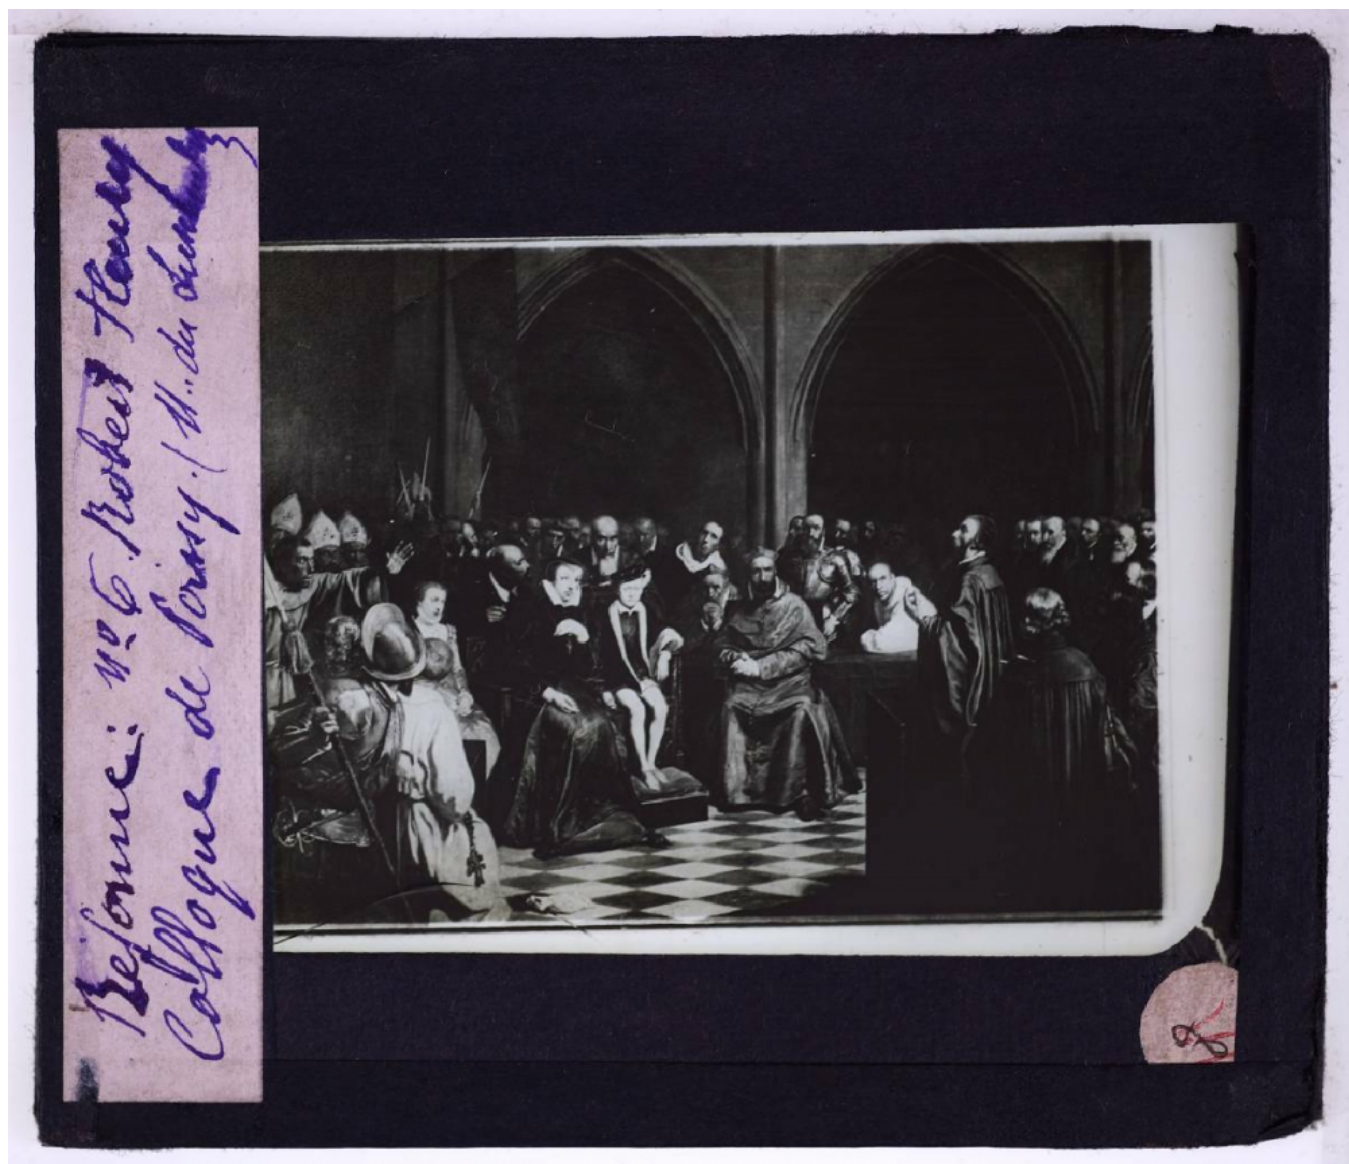 Réforme: nº 6. Robert Fleury
Colloque de Poissy. (M.. du Luxembg)
8